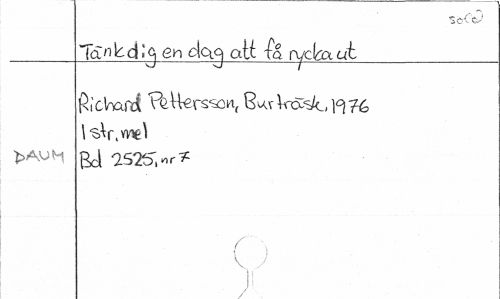 Tänk dig en dag att få rycka ut
Richard Pettersson, Burträsk, 1976
1 str, mel
DAUM Bd 2525, nr 7